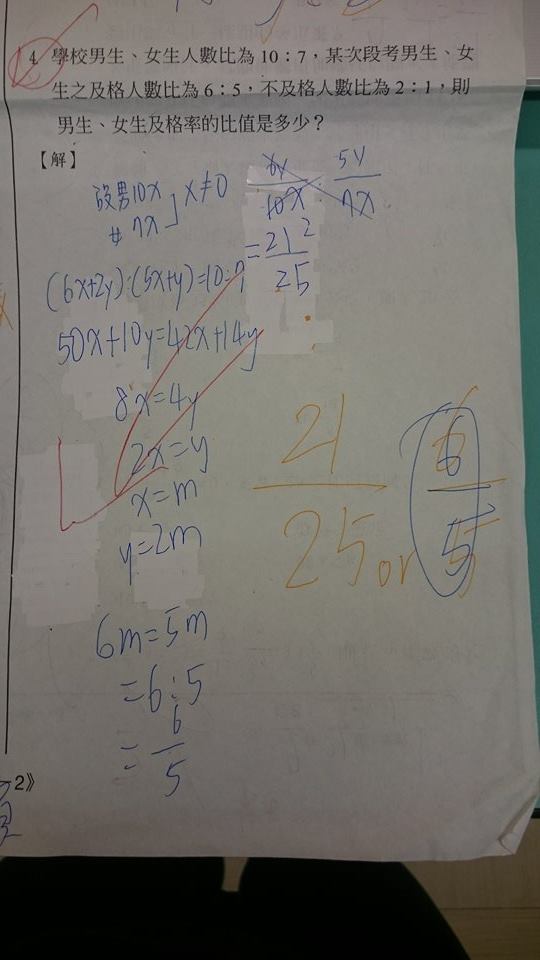 4 學校男生、女生人數比為 10:7,某次段考男生、女
生之及格人數比為 6:5,不及格人數比為 2:1,則
男生、女生及格率的比值是多少?
【解】
設男10x
女 7x ] x≠0
6y/10x 5y/7x
= 21/25
(6x+2y):(5x+y)=10:7
50x+10y=42x+14y
8x=4y
2x=y
x=m
y=2m
21/25 or 6/5
6m=5m
=6:5
=6/5
2》